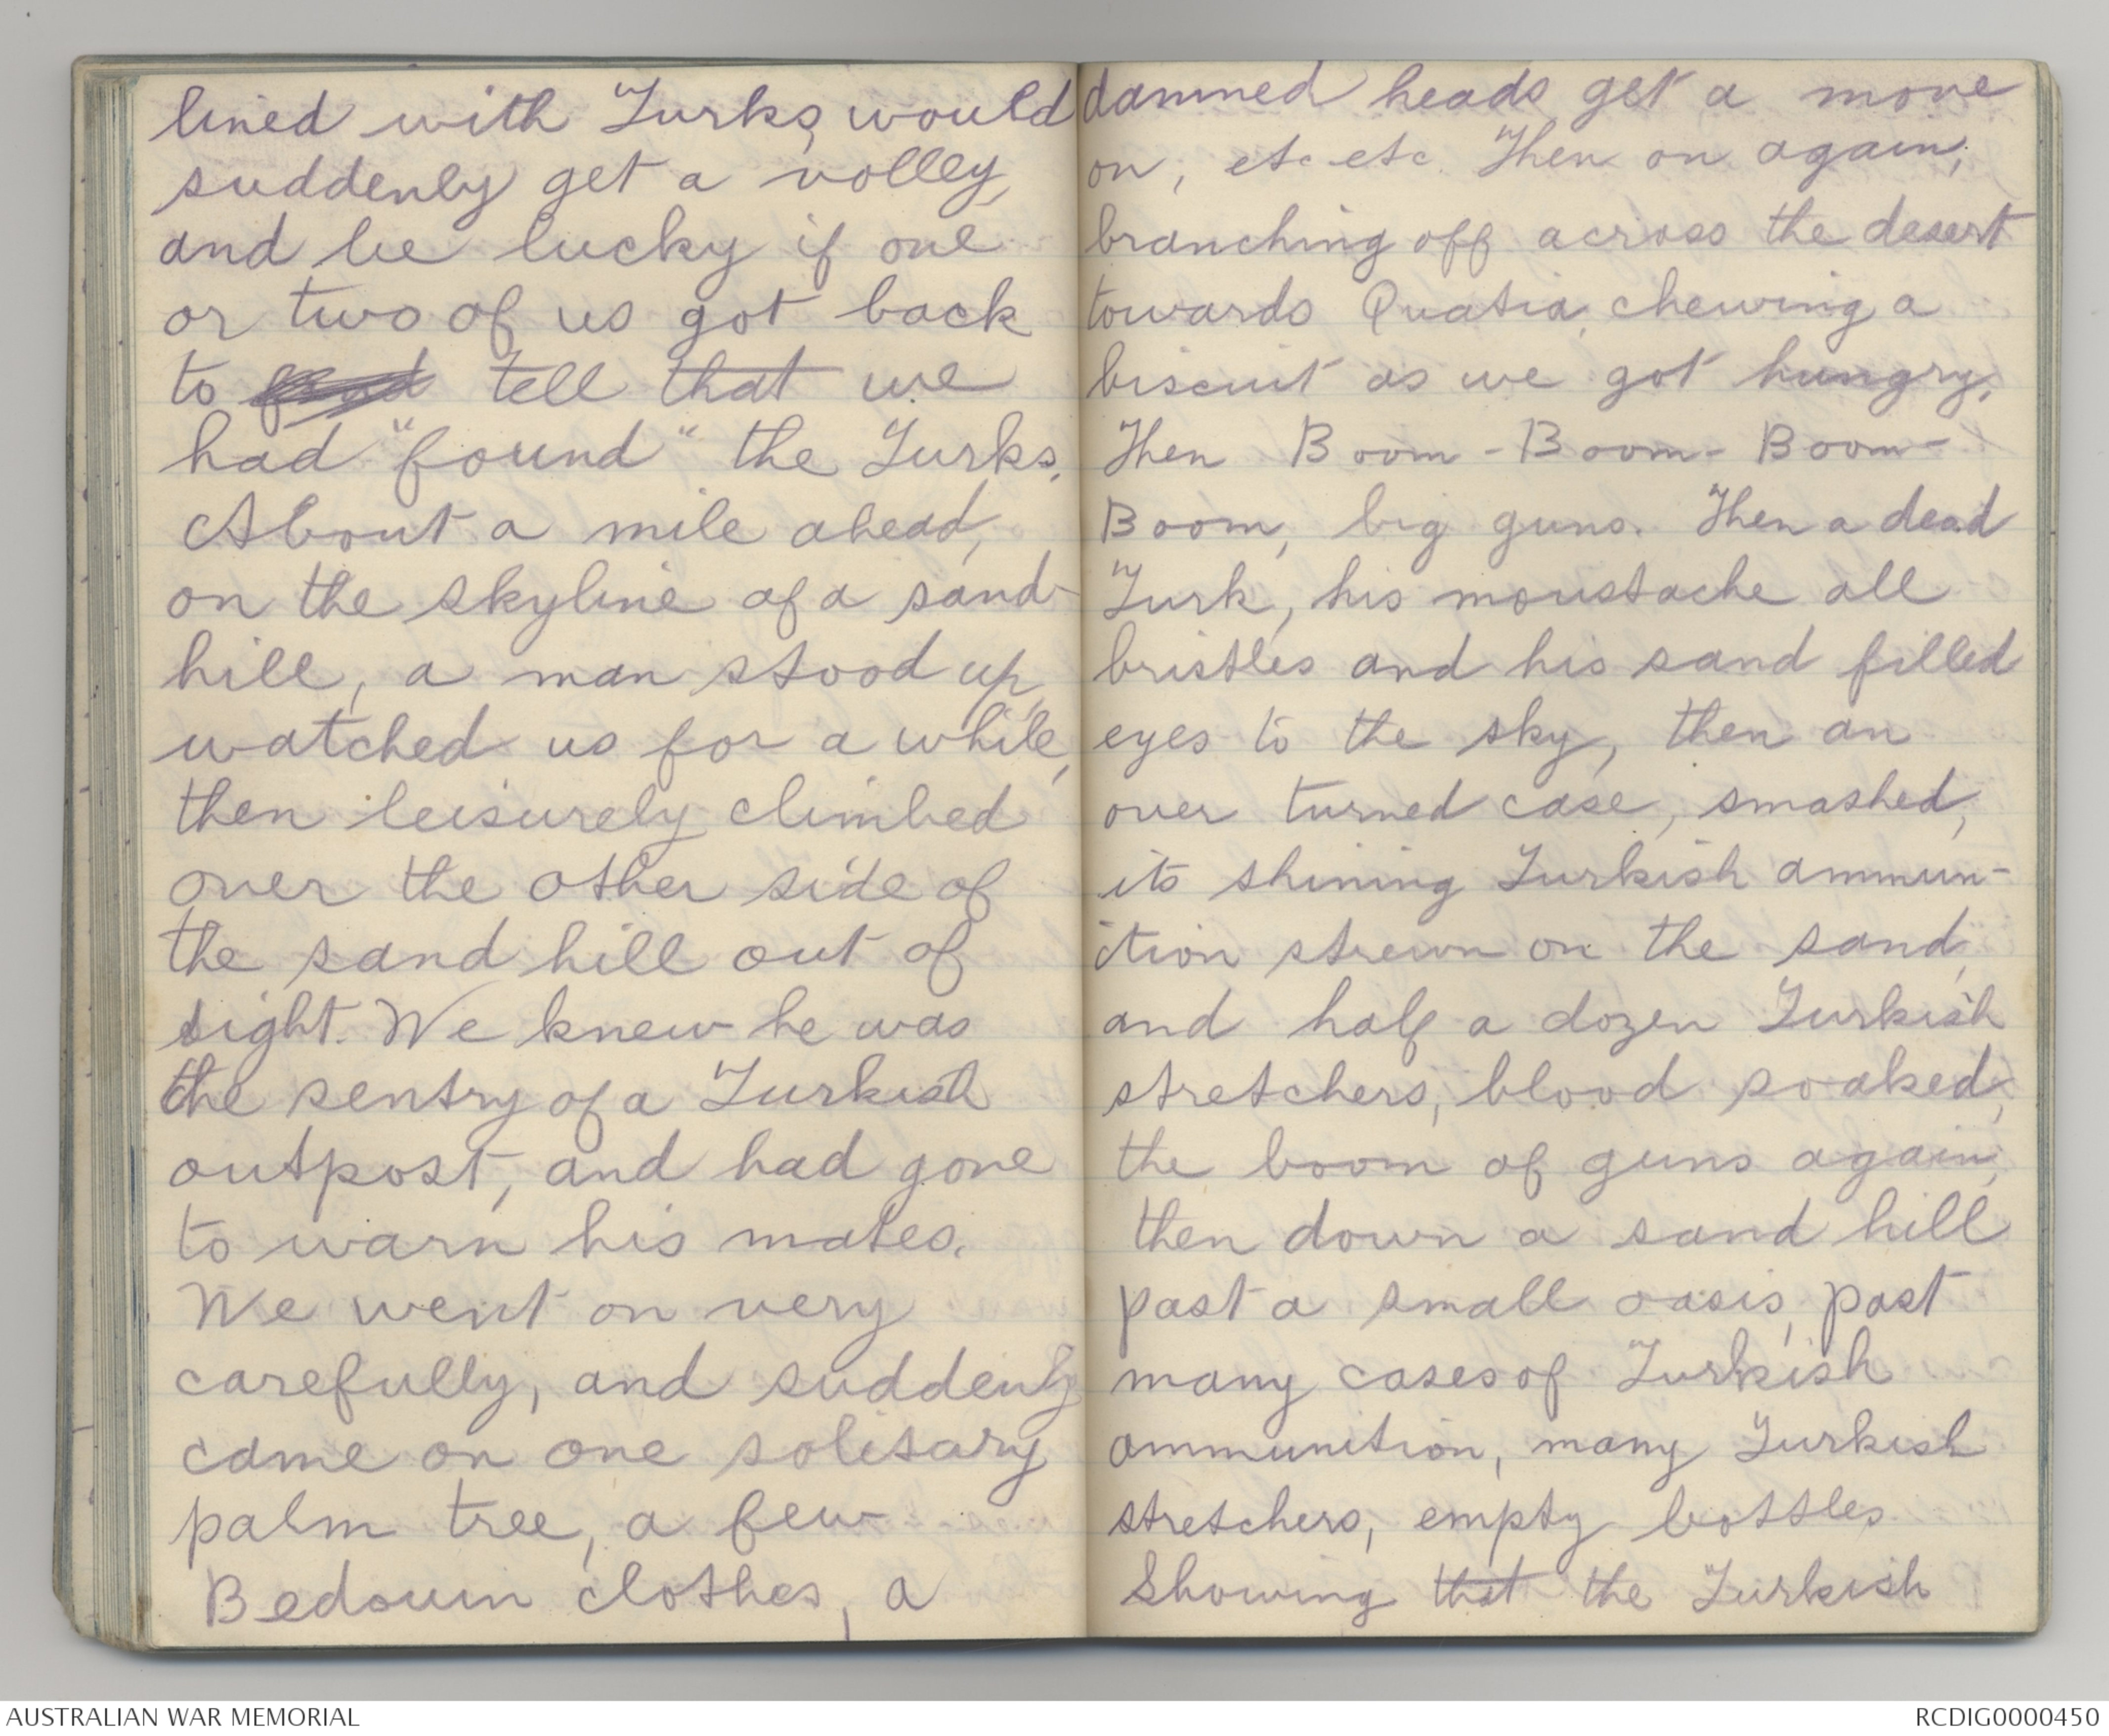 lined with Turks, would
suddenly get a volley,
and be lucky if one
or two of us got back
to tell that we
had "found" the Turks.
About a mile ahead,
on the skyline of a sand-
hill, a man stood up,
watched us for a while,
then leisurely climbed
over the other side of
the sand hill out of
sight. We knew he was
the sentry of a Turkish
outpost, and had gone
to warn his mates.
We went on very
carefully, and suddenly
came on one solitary
palm tree, a few
Bedouin clothes, a
damned heads get a move
on, etc etc. Then on again,
branching off across the desert
towards Quatia, chewing a
biscuit as we got hungry.
Then Boom - Boom - Boom -
Boom, big guns. Then a dead
Turk, his moustache all
bristles and his sand filled
eyes to the sky, then an
over turned case, smashed,
its shining Turkish ammun-
ition strewn on the sand,
and half a dozen Turkish
stretchers, blood soaked,
the boom of guns again,
then down a sand hill
past a small oasis, past
many cases of Turkish
ammunition, many Turkish
stretchers, empty bottles
showing that the Turkish
AUSTRALIAN WAR MEMORIAL
RCDIG0000450